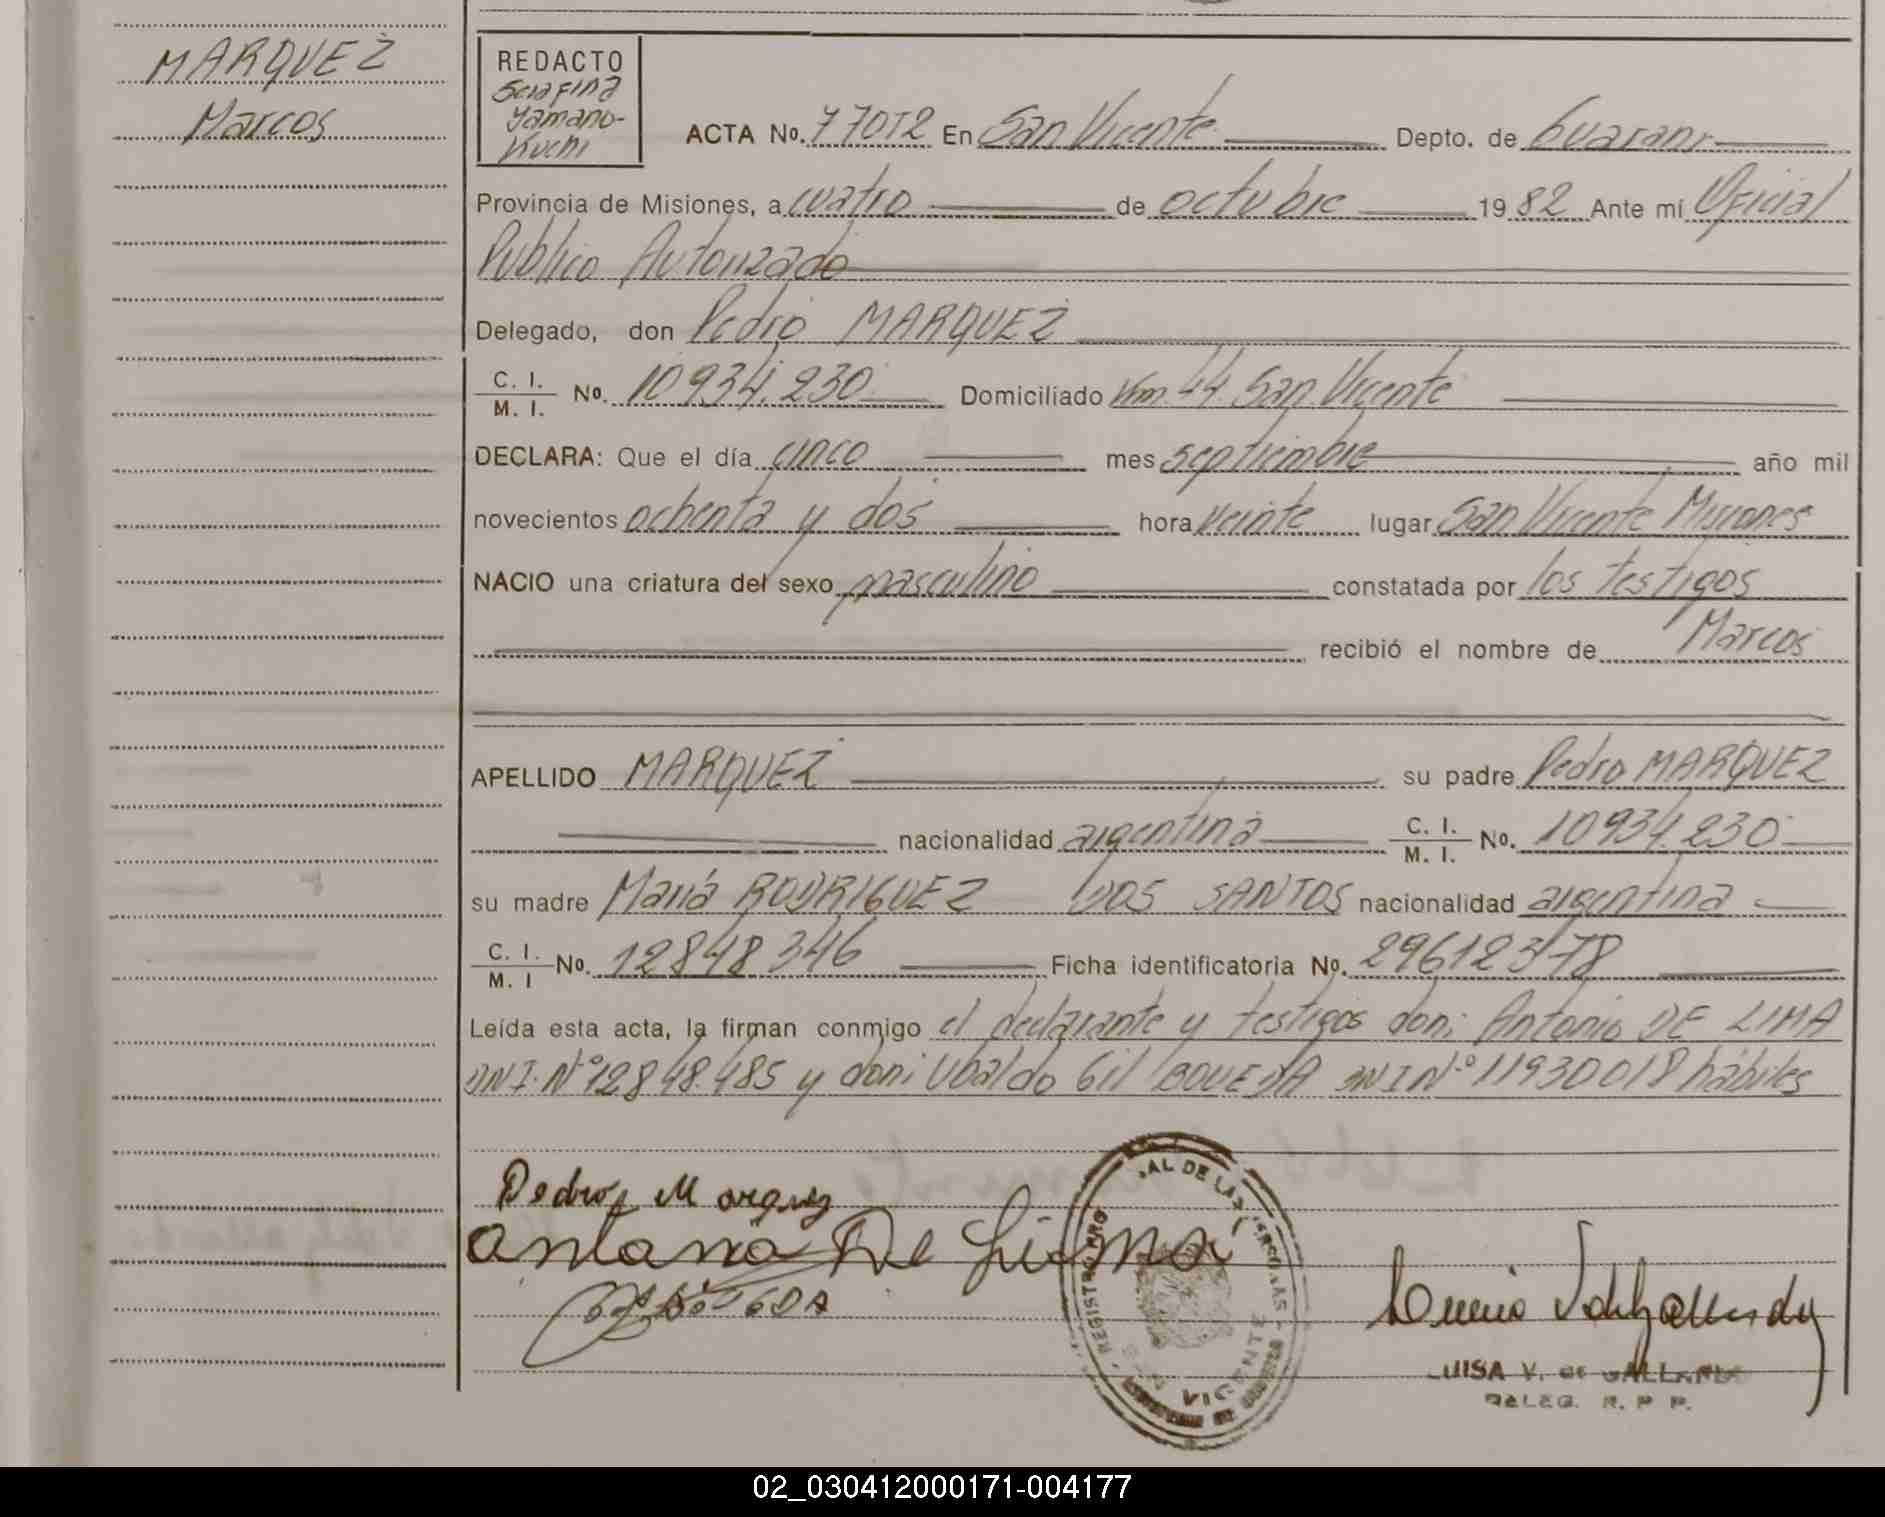 MARQUEZ
Marcos
REDACTO
Serafina
Yamano-
Kuchi
ACTA No. 770T2 En San Vicente Depto. de Guarani
Provincia de Misiones, a cuatro de octubre 19 82 Ante mí Oficial
Publico Autorizado
Delegado, don Pedro MARQUEZ
C. I.
M. I. No. 10934.230 Domiciliado Km. 44. San Vicente
DECLARA: Que el día cinco mes septiembre año mil
novecientos ochenta y dos hora veinte lugar San Vicente Misiones
NACIO una criatura del sexo masculino constatada por los testigos
recibió el nombre de Marcos
APELLIDO MARQUEZ su padre Pedro MARQUEZ
nacionalidad argentina C. I.
M. I. No. 10934.230
su madre María RODRIGUEZ DOS SANTOS nacionalidad argentina
C. I.
M. I No. 12848346 Ficha identificatoria No. 296123/78
Leída esta acta, la firman conmigo el declarante y testigos don: Antonio DE LIMA
DNI. Nº 12848.485 y don: Ubaldo Gil BOVEDA DNI Nº 11930018 hábiles
Pedro Marquez
Antonio De Lima
REGISTRO PRO AL DE LAS
VICENTE
LUISA V. DE GALLARDO
DELEG. R. P. P.
02_030412000171-004177